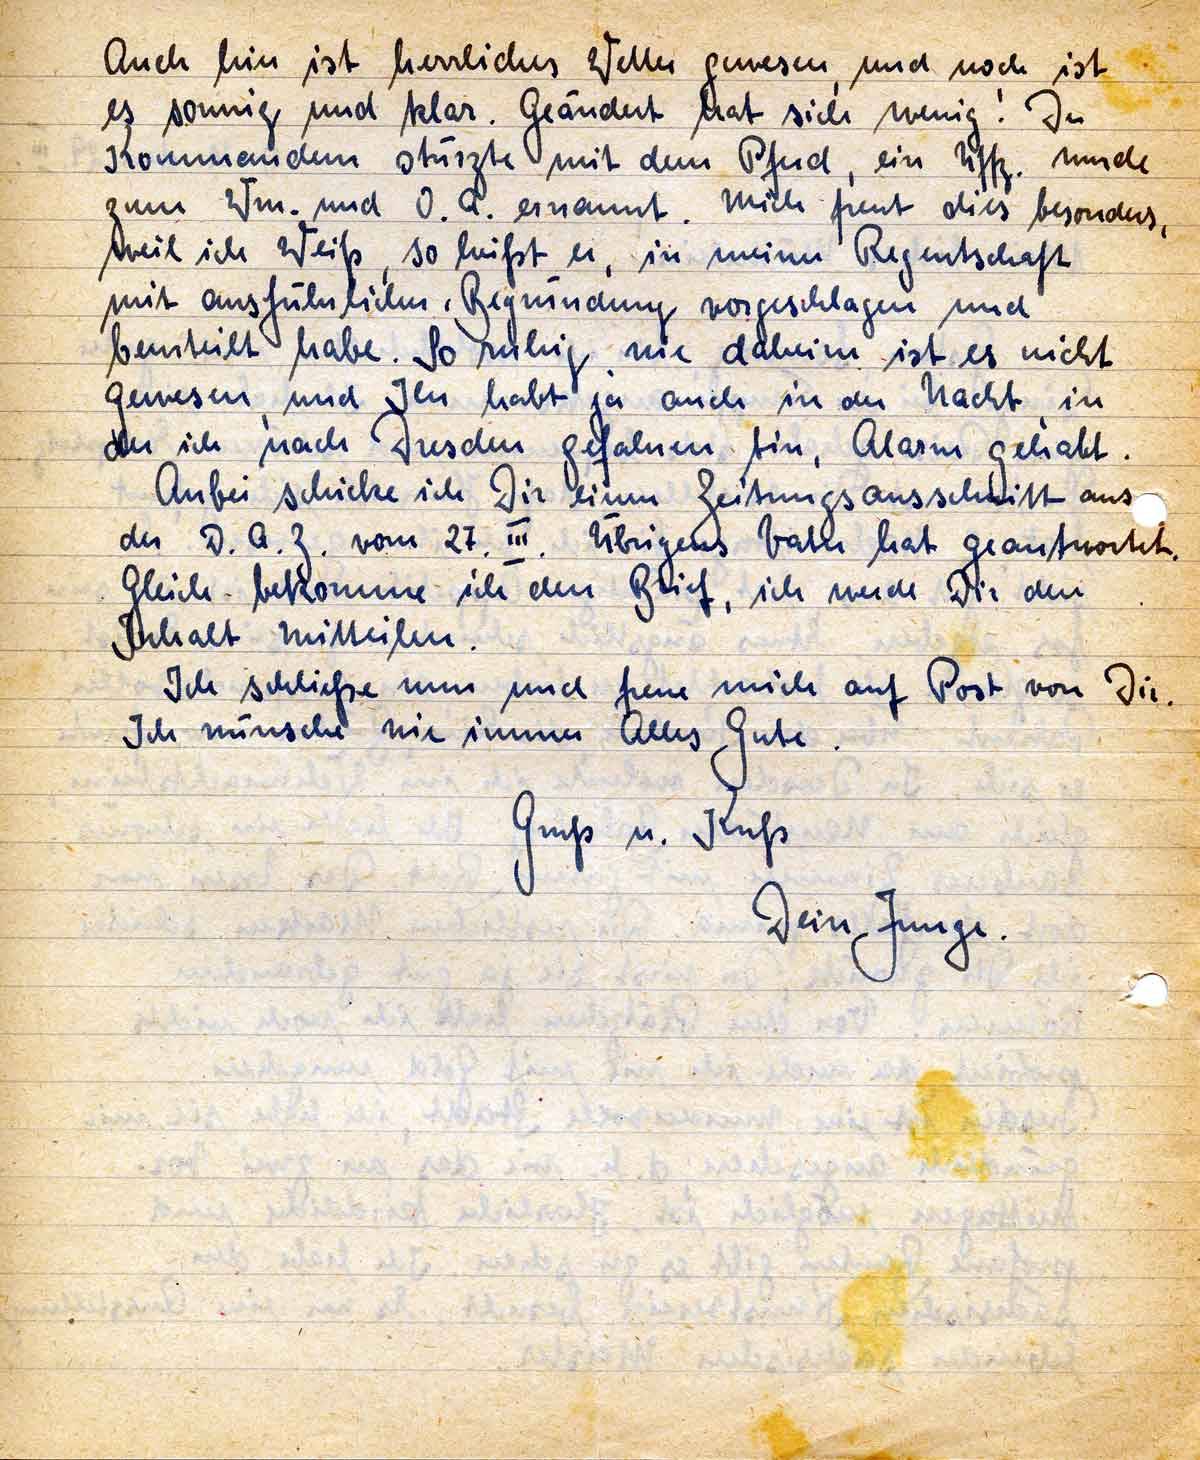 Auch hier ist herrliches Wetter gewesen, und noch ist
es sonnig und klar. Geändert hat sich wenig! Der
Kommandeur stürzte mit dem Pferd, ein Uffz. wurde
zum Wm. und O.A. ernannt. Mich freut dies besonders,
weil ich Weiß, so heißt er, in meiner Regentschaft
mit ausführlicher Begründung vorgeschlagen und
beurteilt habe. So ruhig wie daheim ist es nicht
gewesen, und Ihr habt ja auch in der Nacht, in
der ich nach Dresden gefahren bin, Alarm gehabt.
Anbei schicke ich Dir einen Zeitungsausschnitt aus
der D.A.Z. vom 27. III. Übrigens Vater hat geantwortet.
Gleich bekomme ich den Brief, ich werde Dir den
Inhalt mitteilen.
Ich schließe nun und freue mich auf Post von Dir.
Ich wünsche wie immer Alles Gute.
Gruß u. Kuß
Dein Junge.